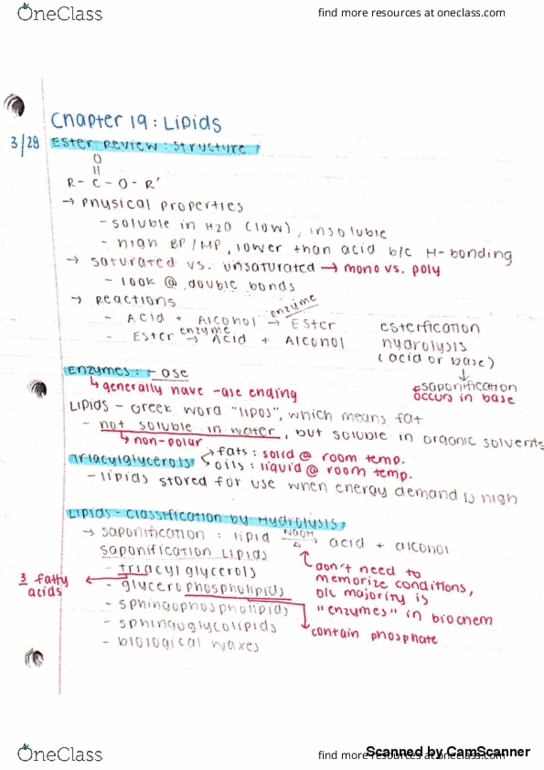 OneClass
find more resources at oneclass.com
Chapter 19: Lipids
3/28 Ester Review: Structure
O
||
R - C - O - R'
→ Physical properties
- soluble in H2O (low), insoluble
- high BP/MP, lower than acid b/c H-bonding
→ saturated vs. unsaturated → mono vs. poly
- look @ double bonds
→ Reactions
- Acid + Alcohol enzyme → Ester esterfication
- Ester enzyme → Acid + Alcohol hydrolysis
(acid or base)
↓
saponification
occurs in base
Enzymes: - ase
↳ generally have -ase ending
Lipids - Greek word "lipos", which means fat
- not soluble in water, but soluble in organic solvents
↳ non-polar
Triacylglycerols
fats: solid @ room temp.
oils: liquid @ room temp.
- lipids stored for use when energy demand is high
Lipids - Classification by Hydrolysis
→ saponification: lipid NaOH → Δ acid + alcohol
saponification lipids
don't need to
memorize conditions,
b/c majority is
"enzymes" in biochem
- triacyl glycerols
3 fatty
acids
- glycerophospholipids
- sphingophospholipids
contain phosphate
- sphingoglycolipids
- biological waxes
OneClass
find more resources at oneclass.com
Scanned by CamScanner